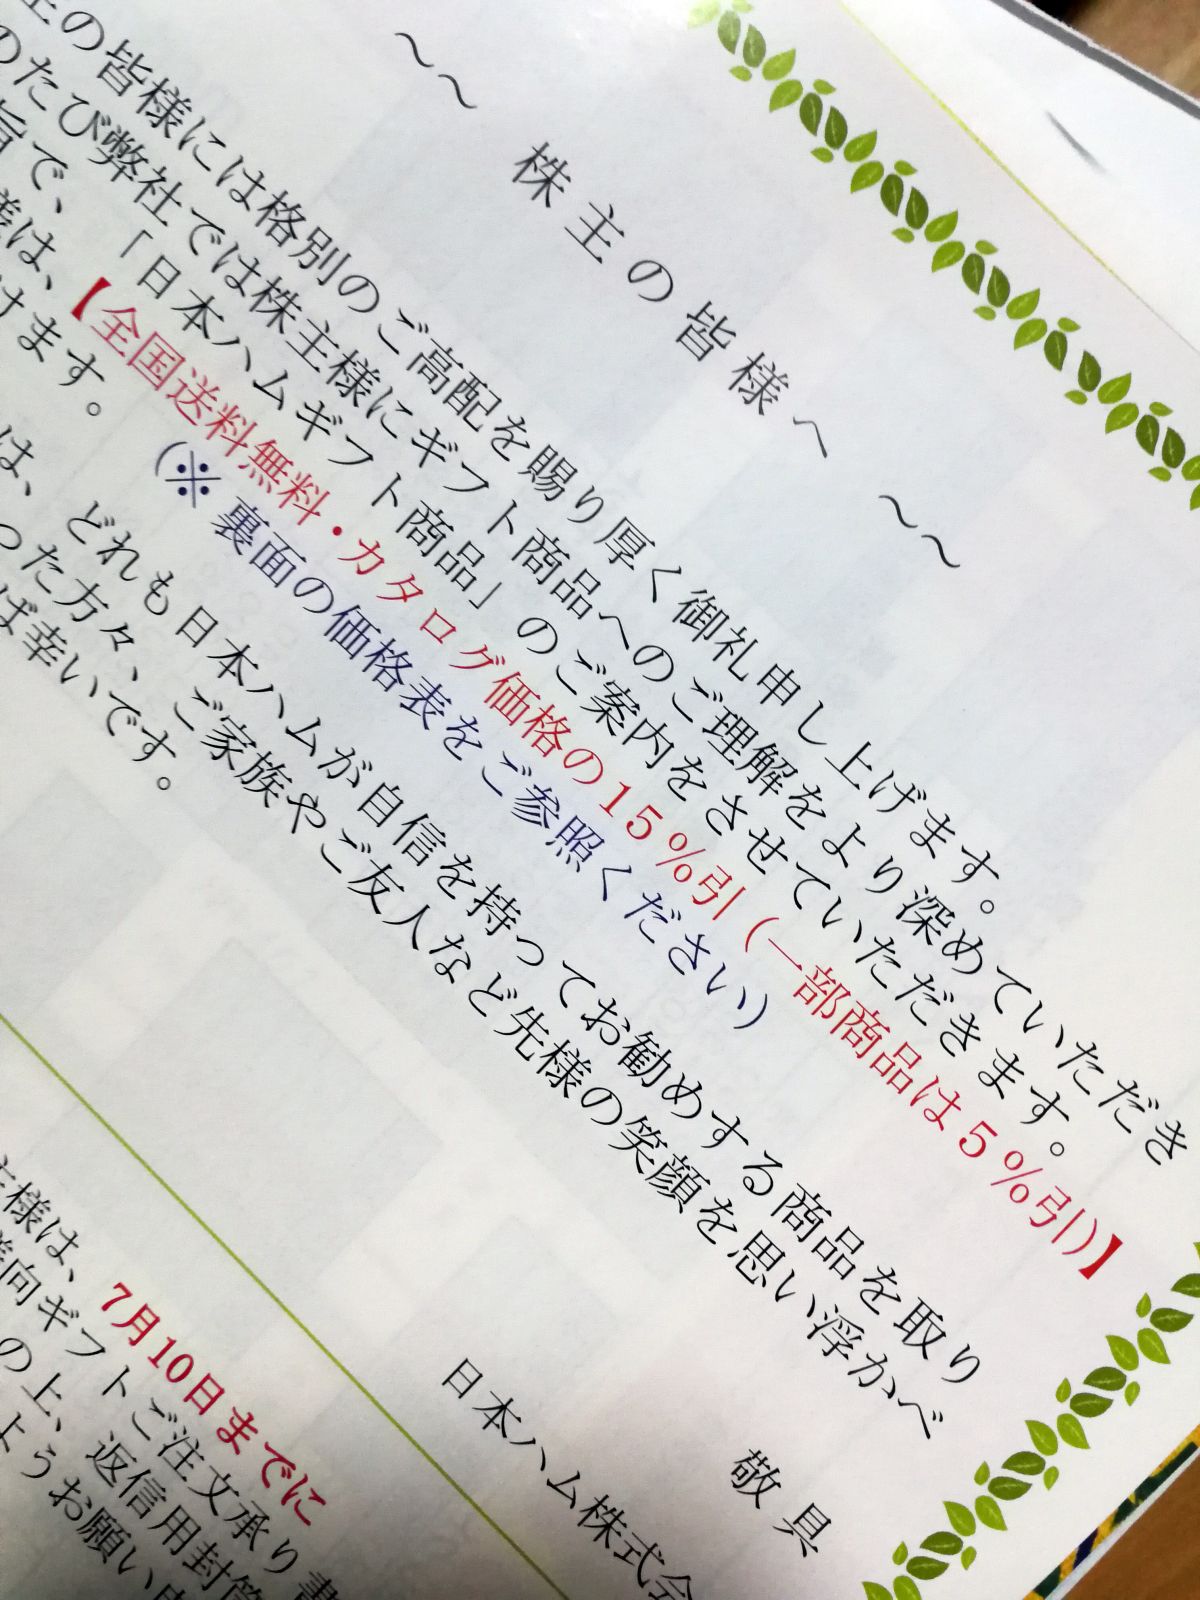 〜〜 株主の皆様へ 〜〜
主の皆様には格別のご高配を賜り厚く御礼申し上げます。
のたび弊社では株主様にギフト商品へのご理解をより深めていただき
旨で、「日本ハムギフト商品」のご案内をさせていただきます。
様は、【全国送料無料・カタログ価格の15%引(一部商品は5%引)】
けます。 (※裏面の価格表をご参照ください)
は、どれも日本ハムが自信を持ってお勧めする商品を取り
った方々、ご家族やご友人など先様の笑顔を思い浮かべ
ば幸いです。
敬具
日本ハム株式会
主様は、7月10日までに
様向ギフトご注文承り書
の上、返信用封筒
ようお願い申